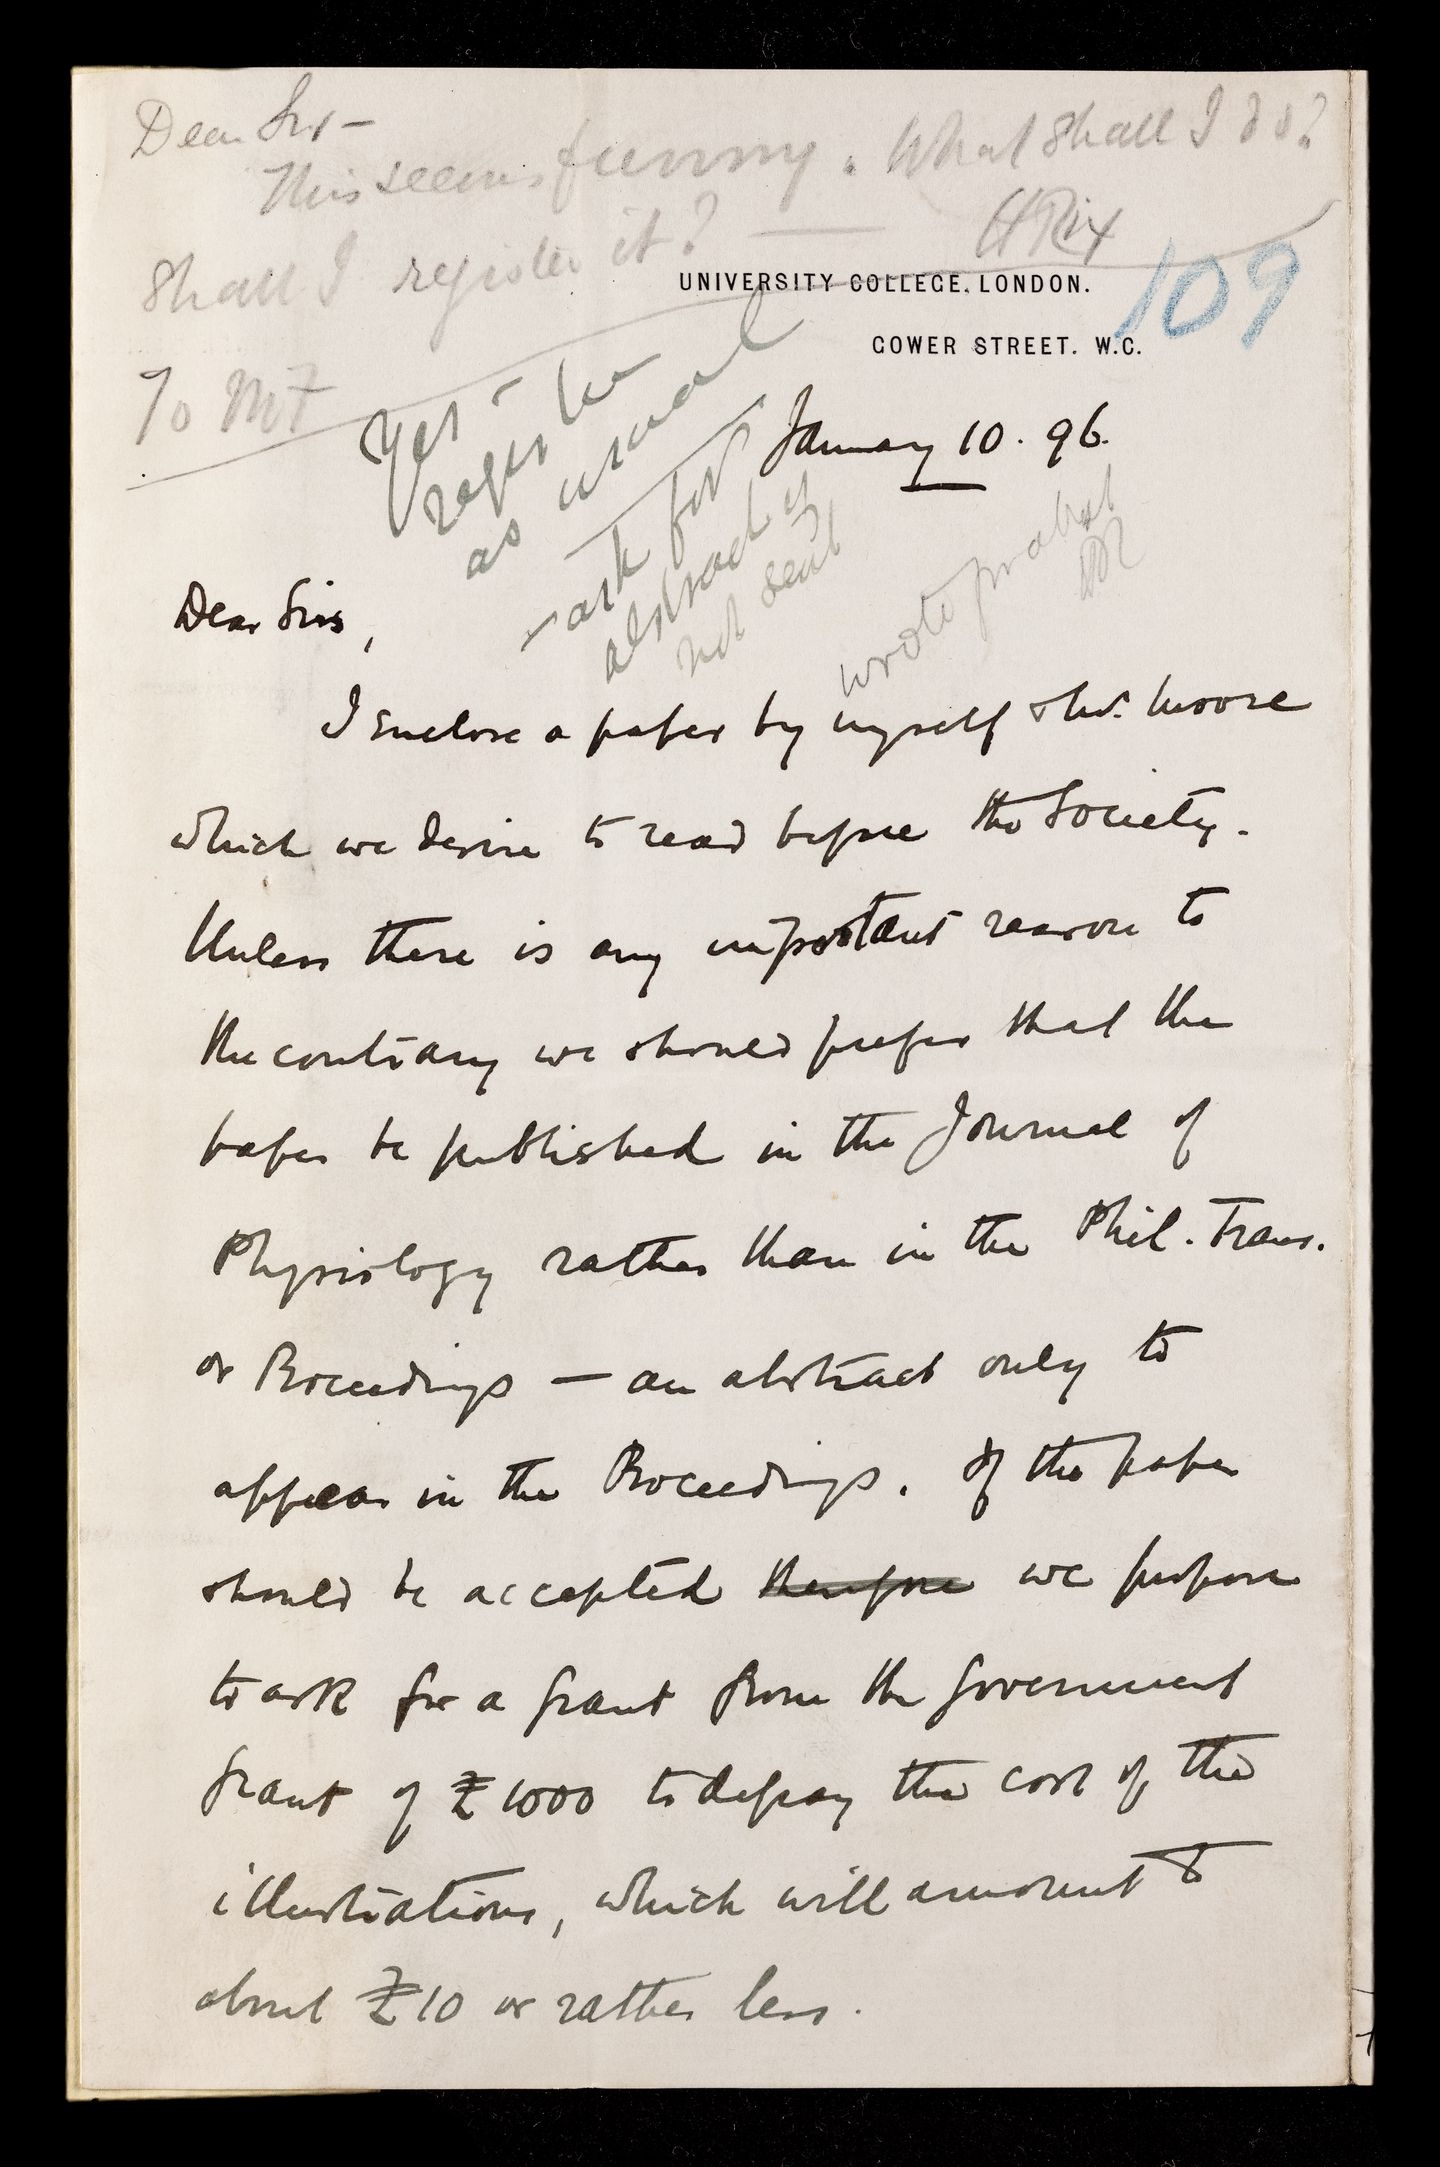 Dear Sir -
This seems funny. What shall I do?
Shall I register it? — H Rix
UNIVERSITY COLLEGE, LONDON.
109
GOWER STREET. W.C.
To MF
Yes - register
as usual
- ask for
abstract if
not sent
wrote for abst
HR
January 10. 96.
Dear Sirs,
I enclose a paper by myself & Mr. Moore
which we desire to read before the Society.
Unless there is any important reason to
the contrary we should prefer that the
paper be published in the Journal of
Physiology rather than in the Phil. Trans.
or Proceedings — an abstract only to
appear in the Proceedings. If the paper
should be accepted therefore we propose
to ask for a grant from the Government
grant of £1000 to defray the cost of the
illustrations, which will amount to
about £10 or rather less.